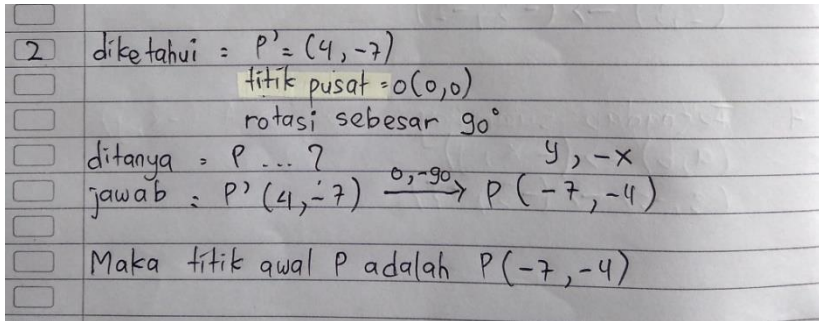 2 diketahui = P' = (4, -7)
titik pusat = O(0,0)
rotasi sebesar 90°
ditanya = P ... ? y, -x
jawab = P' (4, -7) 0, -90 → P (-7, -4)
Maka titik awal P adalah P(-7, -4)